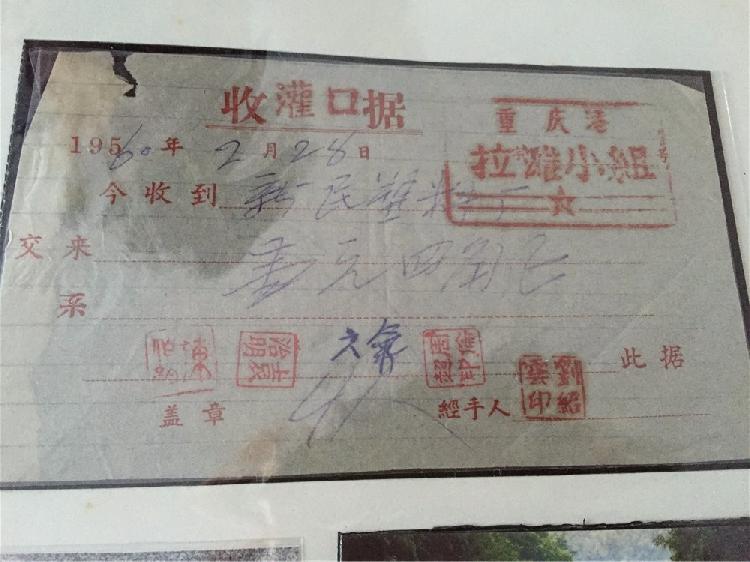 收灌口据
重庆港
拉滩小組
1960年2月28日
今收到新民塑料厂
交来壹元四角正
系
此据
盖章
經手人
劉紹雲印